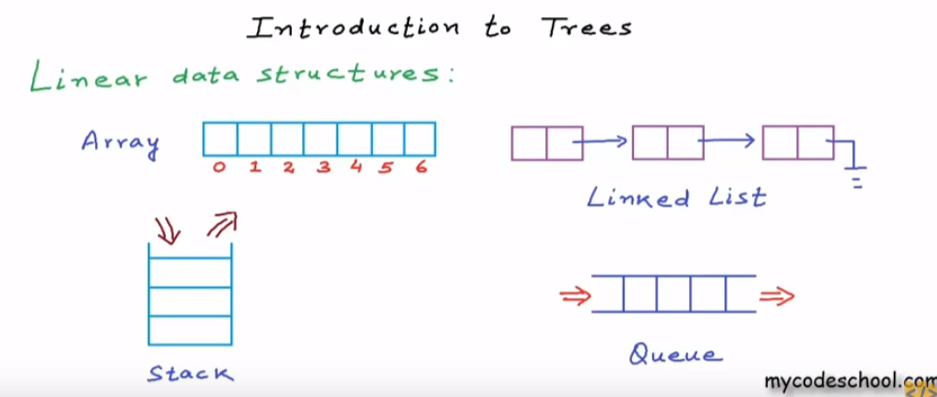 Introduction to Trees
Linear data structures:
Array
0 1 2 3 4 5 6
Linked List
Stack
Queue
mycodeschool.com